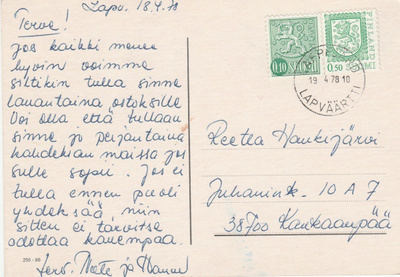 Lapv. 18.4.78
Terve!
Jos kaikki menee
hyvin voimme
silti kin tulla sinne
lauantaina ostoksille
Voi olla että tullaan
sinne jo perjantaina
kahdeksan maissa jos
sulle sopii. Jos ei
tulla ennen puoli
yhdeksää, niin
sitten ei tarvitse
odottaa kauempaa.
Terv.
ja Hannu
255-86
0,10 SUOMI
FINLAND
0,50 SUOMI
19.4.78.10
LAPVÄÄRTTI
Reetta Hankijärvi
Juhanink. 10 A 7
38700 Kankaanpää